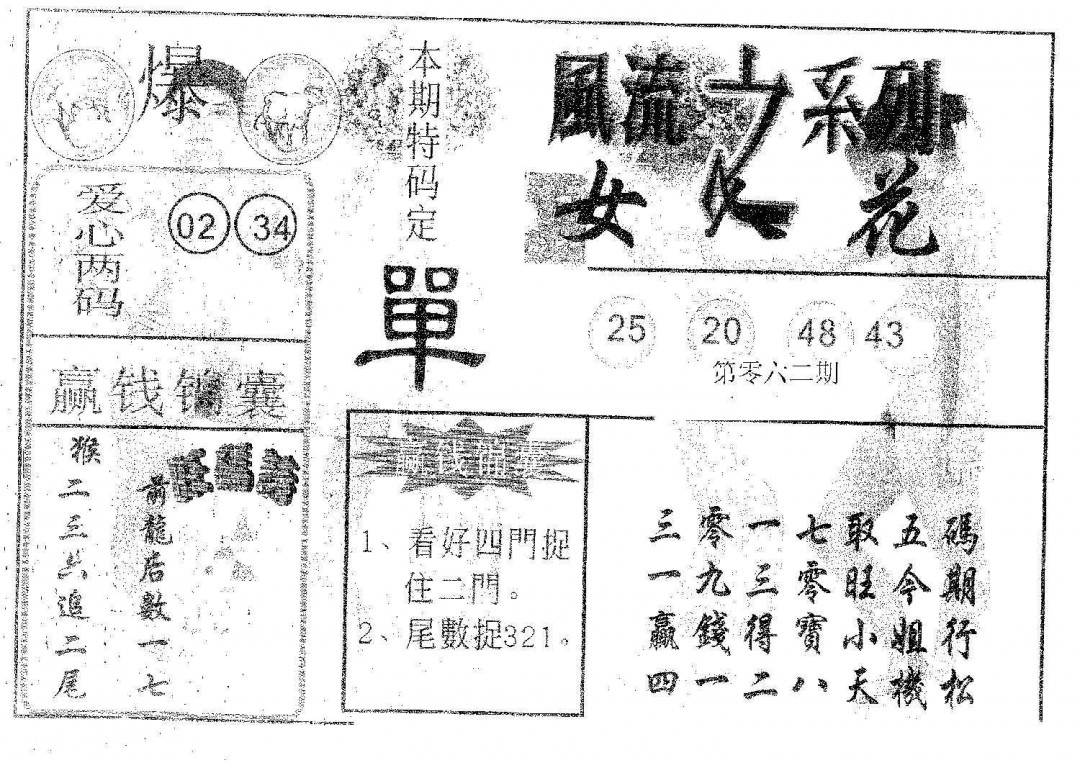 爆
本期特码定
單
風流之系列
女人花
爱心两码
02 34
25 20 48 43
第零六二期
赢钱锦囊
前龍后數一七
猴二三六追二尾
赢钱锦囊
1、看好四門捉
住二門。
2、尾數捉321。
碼期行松
五今姐機
取旺小天
七零寶八
一三得二
零九錢一
三一贏四